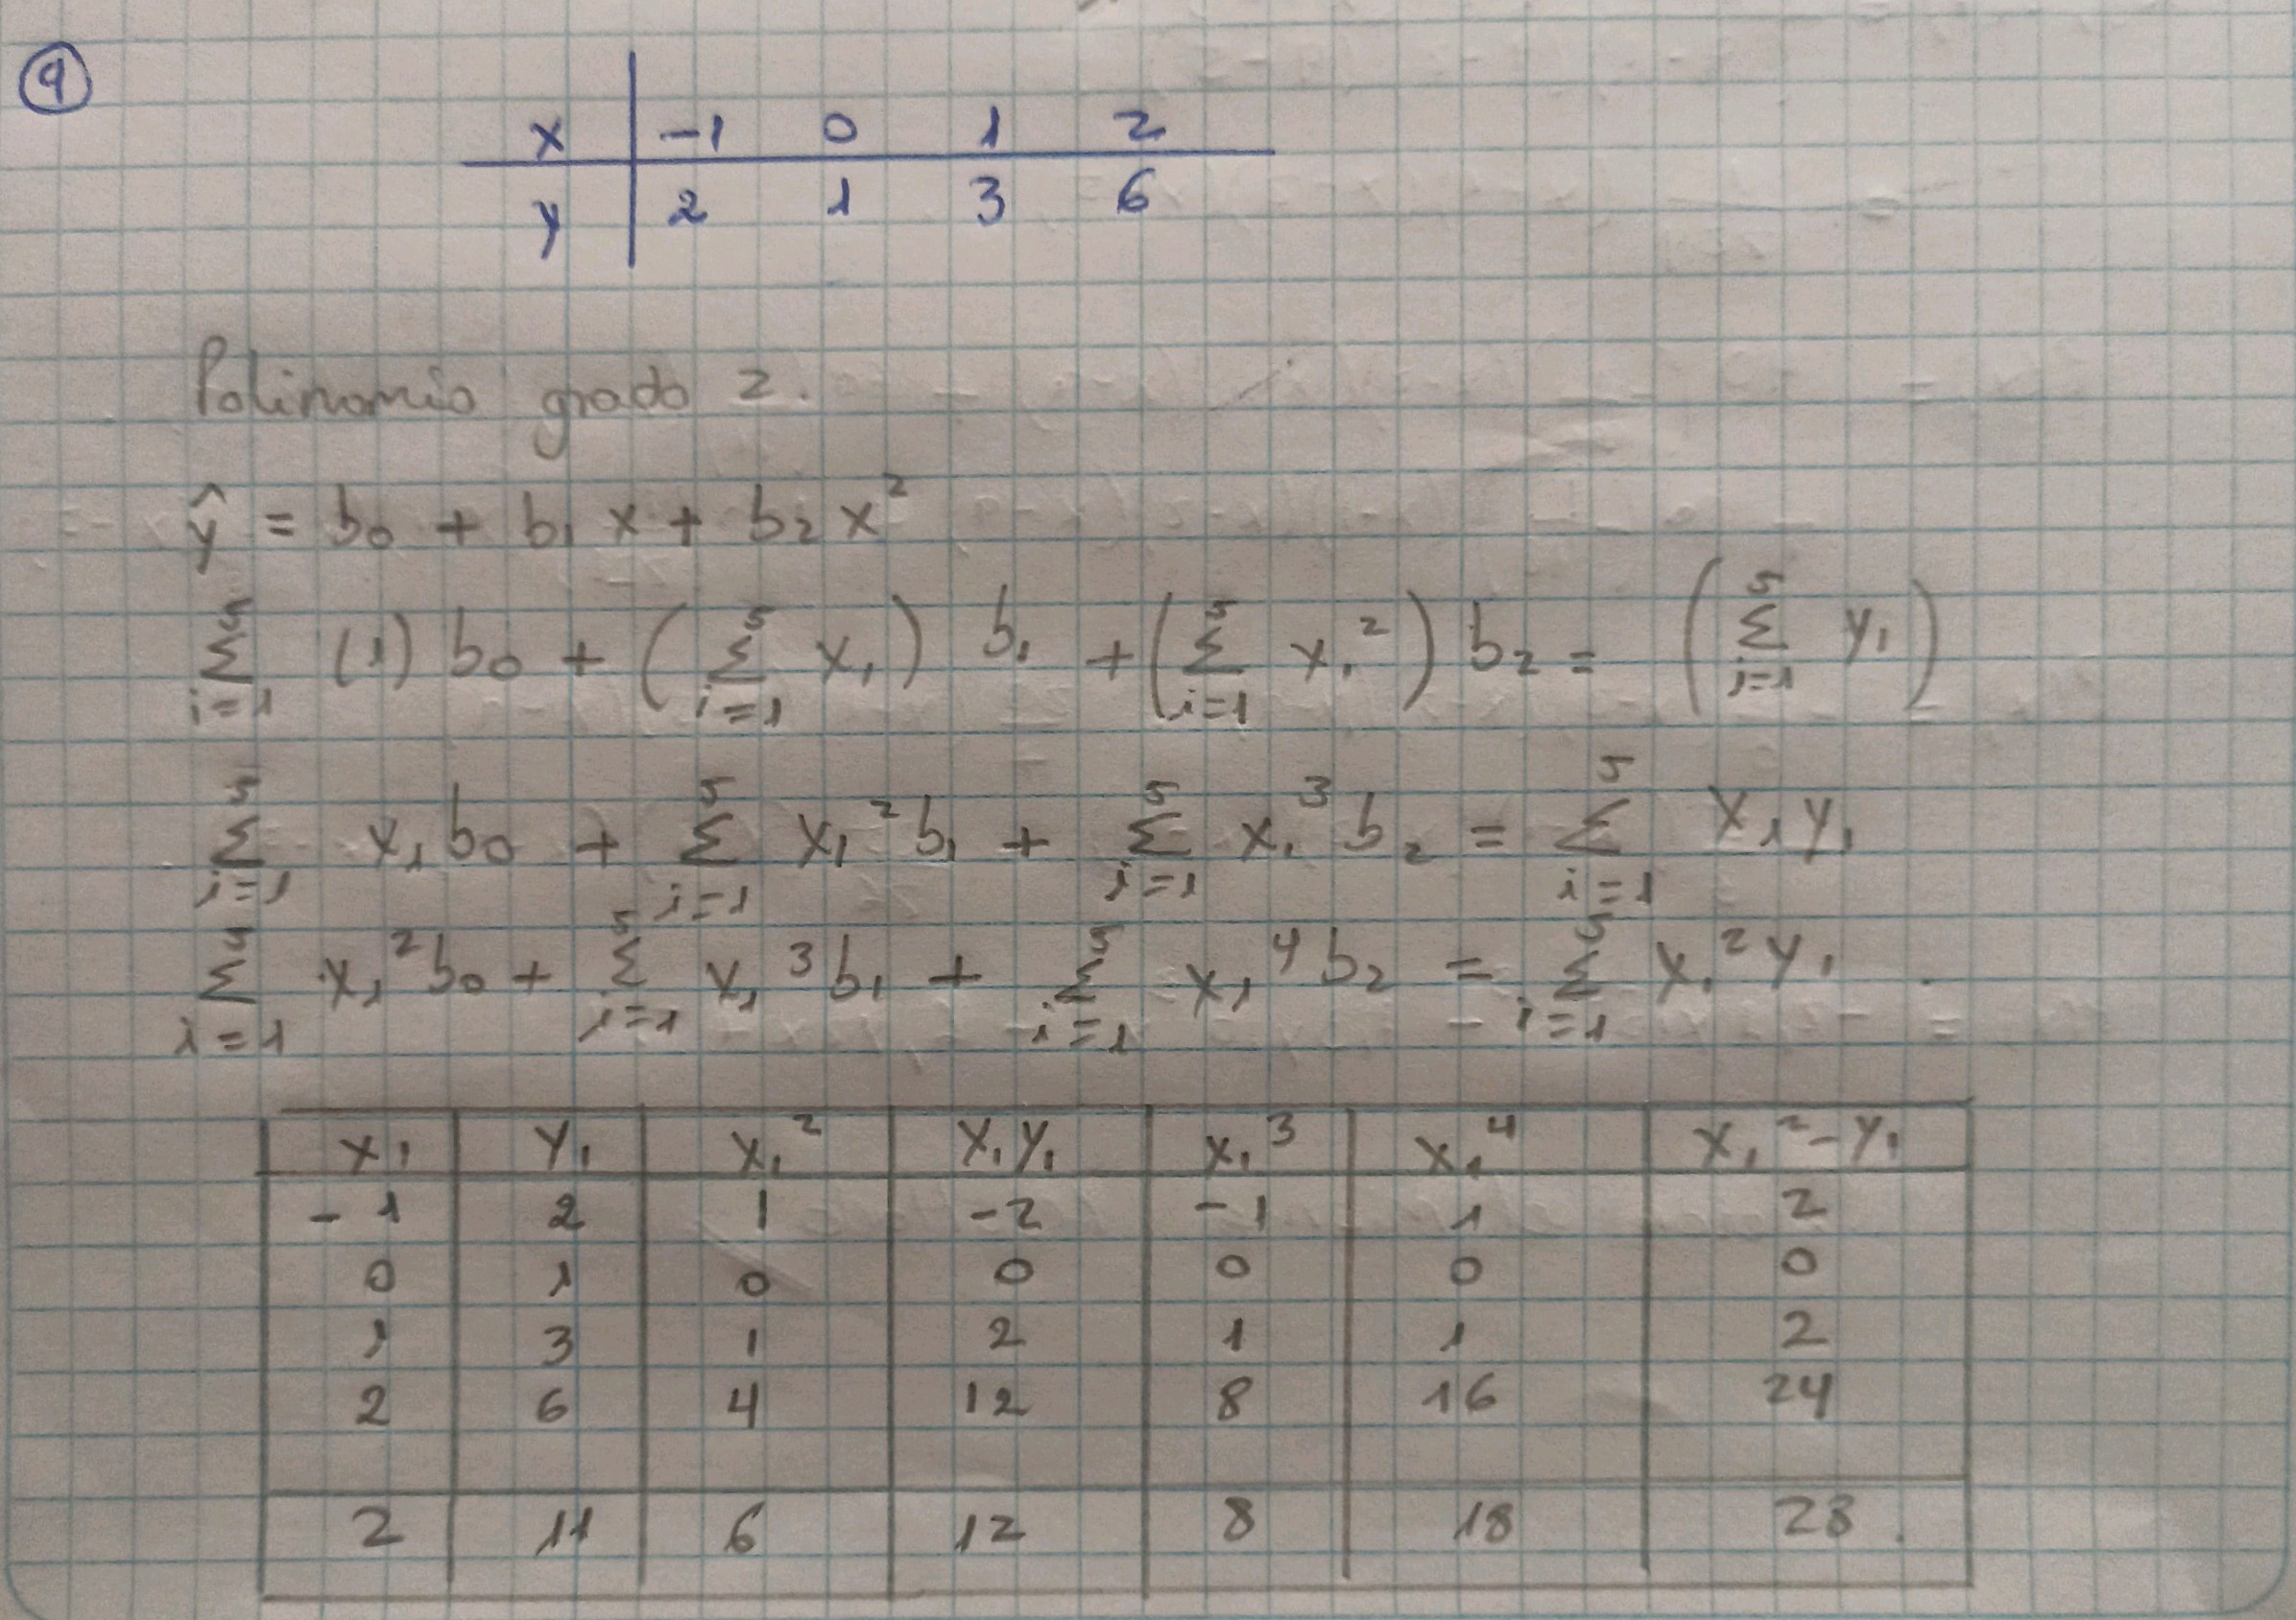 9
x | -1 0 1 2
y | 2 1 3 6
Polinomio grado 2.
ŷ = b₀ + b₁ x + b₂ x²
Σᵢ₌₁⁵ (1) b₀ + (Σᵢ₌₁⁵ x₁) b₁ + (Σᵢ₌₁⁵ x₁²) b₂ = (Σᵢ₌₁⁵ y₁)
Σᵢ₌₁⁵ x₁ b₀ + Σᵢ₌₁⁵ x₁² b₁ + Σᵢ₌₁⁵ x₁³ b₂ = Σᵢ₌₁⁵ x₁ y₁
Σᵢ₌₁⁵ x₁² b₀ + Σᵢ₌₁⁵ x₁³ b₁ + Σᵢ₌₁⁵ x₁⁴ b₂ = Σᵢ₌₁⁵ x₁² y₁
x₁ | y₁ | x₁² | x₁y₁ | x₁³ | x₁⁴ | x₁² - y₁
-1 | 2 | 1 | -2 | -1 | 1 | 2
0 | 1 | 0 | 0 | 0 | 0 | 0
1 | 3 | 1 | 2 | 1 | 1 | 2
2 | 6 | 4 | 12 | 8 | 16 | 24
2 | 11 | 6 | 12 | 8 | 18 | 28.